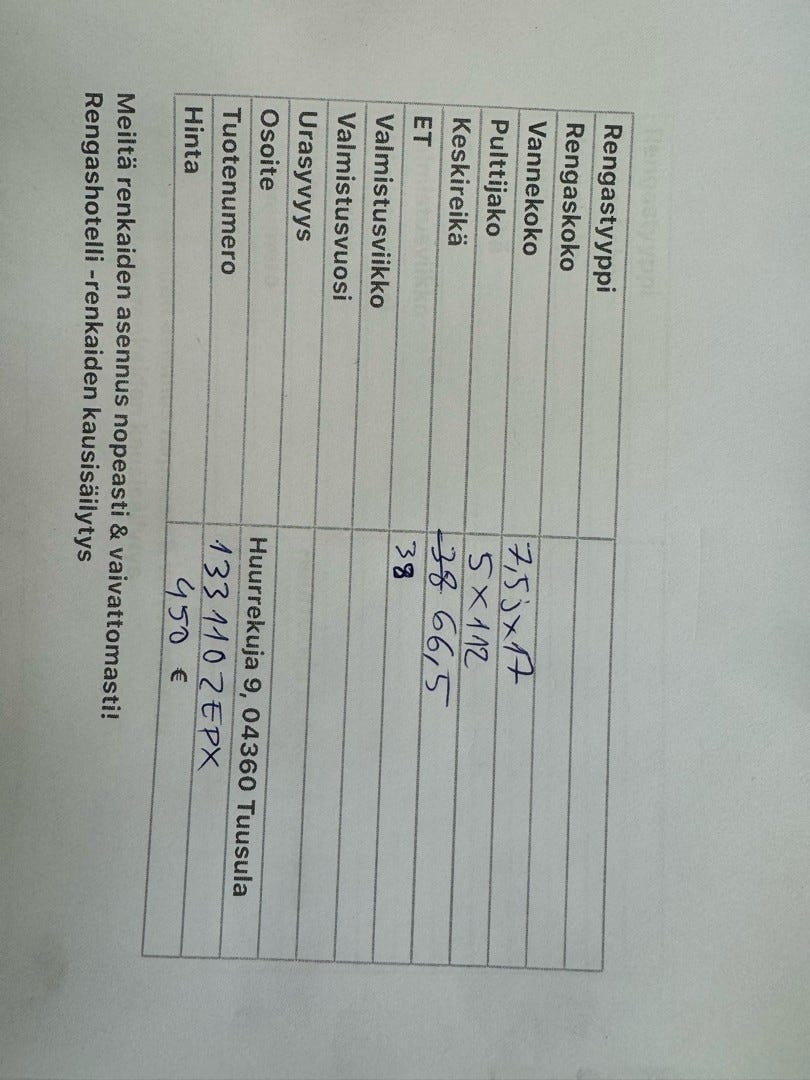 Rengastyyppi
Rengaskoko
Vannekoko 7,5jx17
Pulttijako 5x112
Keskireikä 38 66,5
ET 38
Valmistusviikko
Valmistusvuosi
Urasyvyys
Osoite Huurrekuja 9, 04360 Tuusula
Tuotenumero 133110ZEPX
Hinta 450 €
Meiltä renkaiden asennus nopeasti & vaivattomasti!
Rengashotelli -renkaiden kausisäilytys